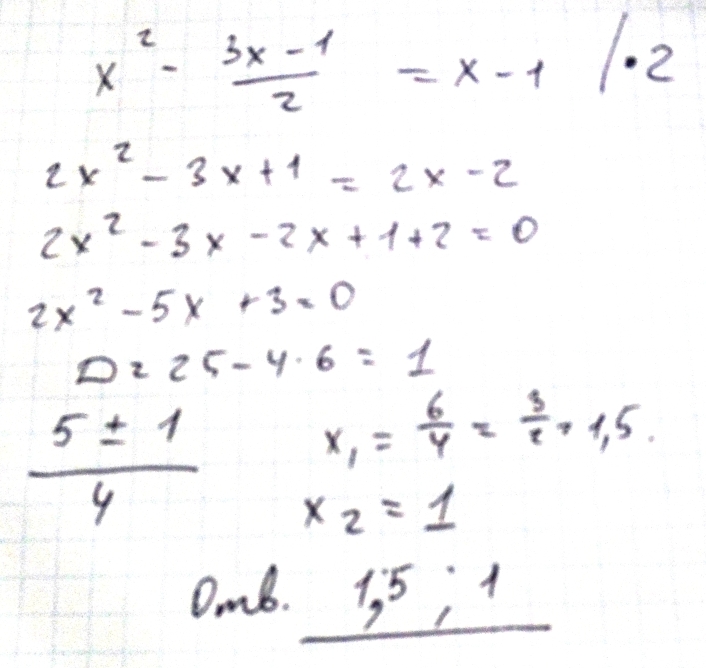 x² - (3x - 1)/2 = x - 1 /·2
2x² - 3x + 1 = 2x - 2
2x² - 3x - 2x + 1 + 2 = 0
2x² - 5x + 3 = 0
D = 25 - 4·6 = 1
(5 ± 1)/4 x₁ = 6/4 = 3/2 = 1,5.
x₂ = 1
Отв. 1,5 ; 1